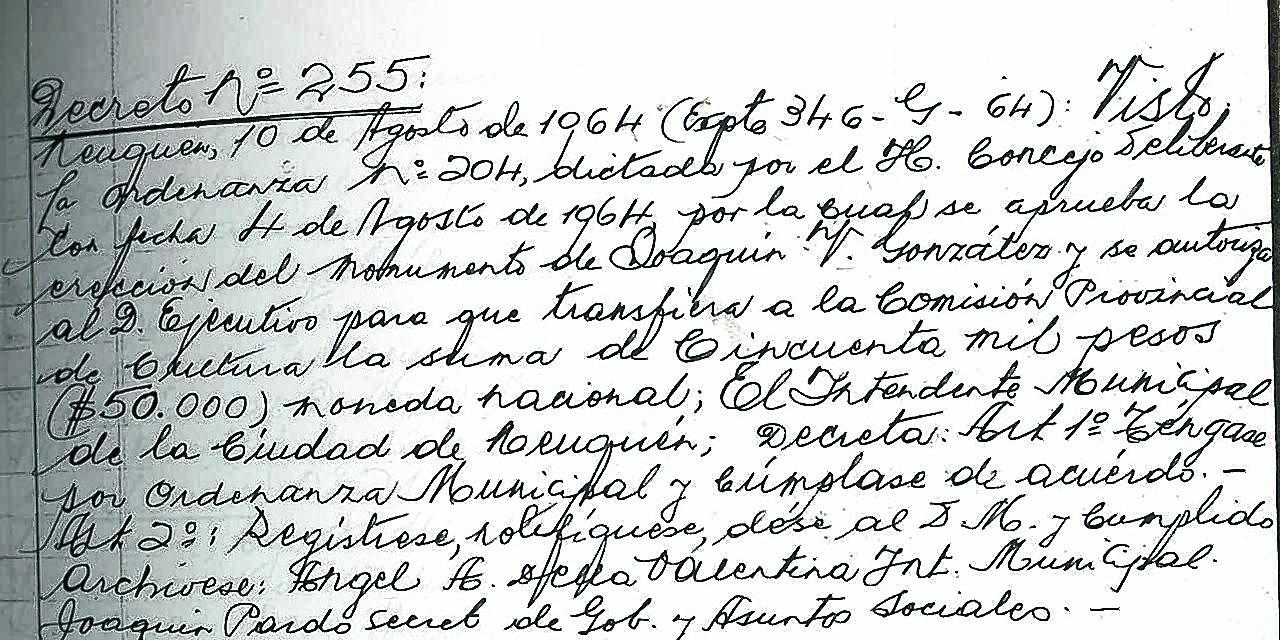 Decreto Nº 255:
Neuquen, 10 de Agosto de 1964 (Expte 346-G-64): Visto,
la ordenanza Nº 204, dictada por el H. Concejo Deliberante
con fecha 4 de Agosto de 1964, por la cual se aprueba la
erección del monumento de Joaquin V. González y se autoriza
al D. Ejecutivo para que transfiera a la Comisión Provincial
de Cultura la suma de Cincuenta mil pesos
($50.000) moneda nacional; El Intendente Municipal
de la Ciudad de Neuquén; Decreta: Art 1º Téngase
por Ordenanza Municipal y Cúmplase de acuerdo. -
Art 2º: Regístrese, notifíquese, dése al D M. y Cumplido
Archivese: Angel A. Della Valentina Int. Municipal.
Joaquin Pardo Secret de Gob. y Asuntos Sociales. -